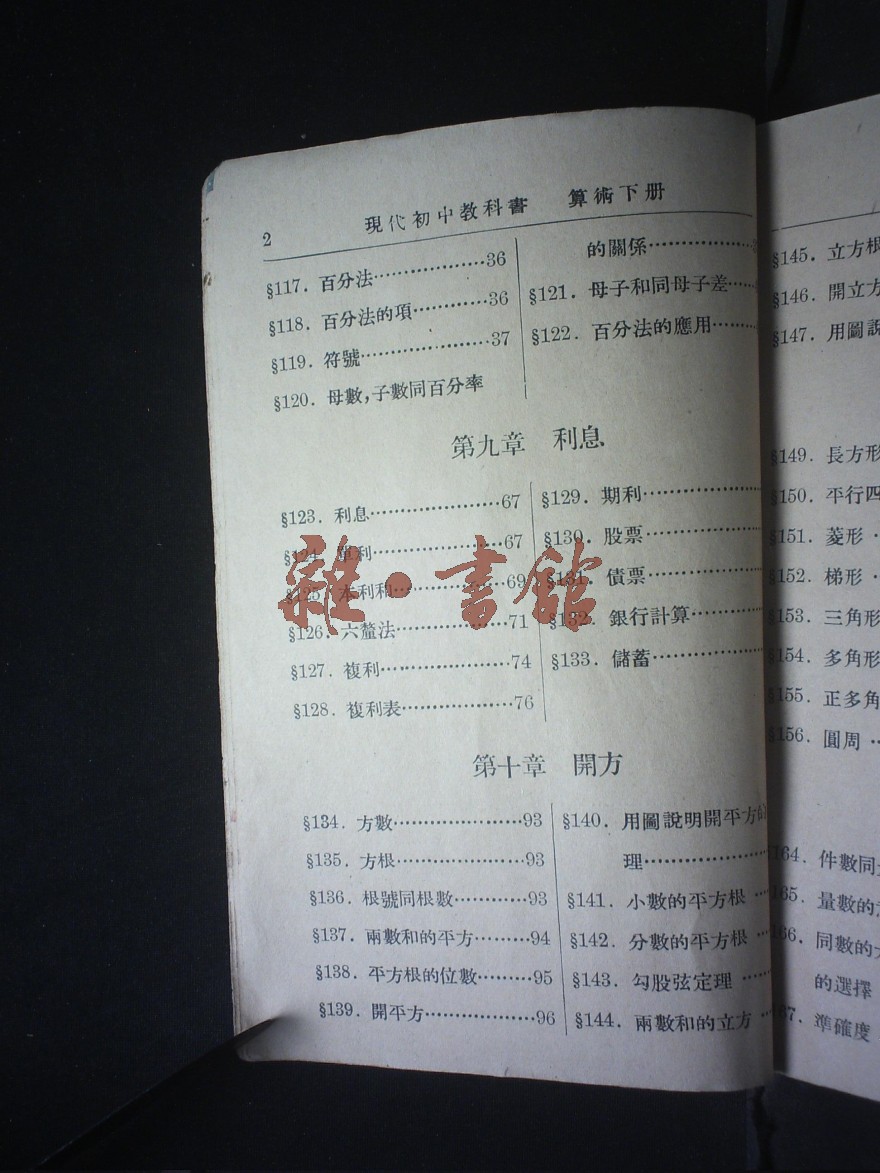 2 現代初中教科書 算術下册
§117. 百分法…………………36
§118. 百分法的項…………36
§119. 符號…………………37
§120. 母數,子數同百分率
的關係……………
§121. 母子和同母子差……
§122. 百分法的應用………
第九章 利息
§123. 利息…………………67
§124. 單利…………………67
§125. 本利和………………69
§126. 六釐法………………71
§127. 複利…………………74
§128. 複利表………………76
§129. 期利………………
§130. 股票………………
§131. 債票………………
§132. 銀行計算…………
§133. 儲蓄………………
第十章 開方
§134. 方數…………………93
§135. 方根…………………93
§136. 根號同根數…………93
§137. 兩數和的平方………94
§138. 平方根的位數………95
§139. 開平方………………96
§140. 用圖說明開平方的
理………………
§141. 小數的平方根…
§142. 分數的平方根…
§143. 勾股弦定理……
§144. 兩數和的立方…
§145. 立方根
§146. 開立方
§147. 用圖說
§149. 長方形
§150. 平行四
§151. 菱形
§152. 梯形
§153. 三角形
§154. 多角形
§155. 正多角
§156. 圓周
164. 件數同
165. 量數的
166. 同數的
的選擇
167. 準確度
雜·書館